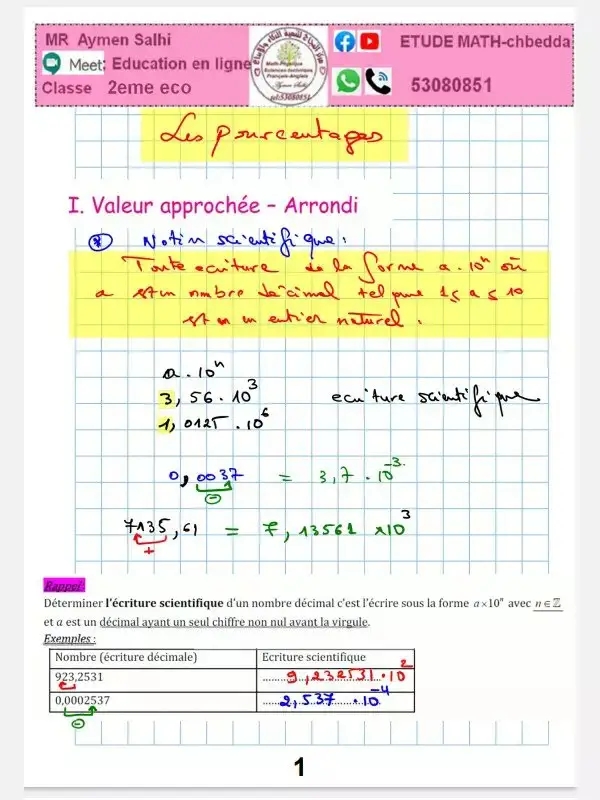 MR Aymen Salhi
Meet: Education en ligne
Classe 2eme eco
ETUDE MATH-chbedda
53080851
Les pourcentages
I. Valeur approchée – Arrondi
* Notion scientifique :
Toute ecriture de la forme a . 10ⁿ où
a est un nombre décimal tel que 1 ≤ a ≤ 10
et n un entier naturel .
a . 10ⁿ
3, 56 . 10³ ecriture scientifique
1, 0125 . 10⁶
0, 0037 = 3,7 . 10⁻³
7135, 61 = 7, 13561 ×10³
Rappel:
Déterminer l'écriture scientifique d'un nombre décimal c'est l'écrire sous la forme a×10ⁿ avec n∈ℤ
et a est un décimal ayant un seul chiffre non nul avant la virgule.
Exemples :
Nombre (écriture décimale) Ecriture scientifique
923,2531 9,232531 . 10²
0,0002537 2,537 . 10⁻⁴
1